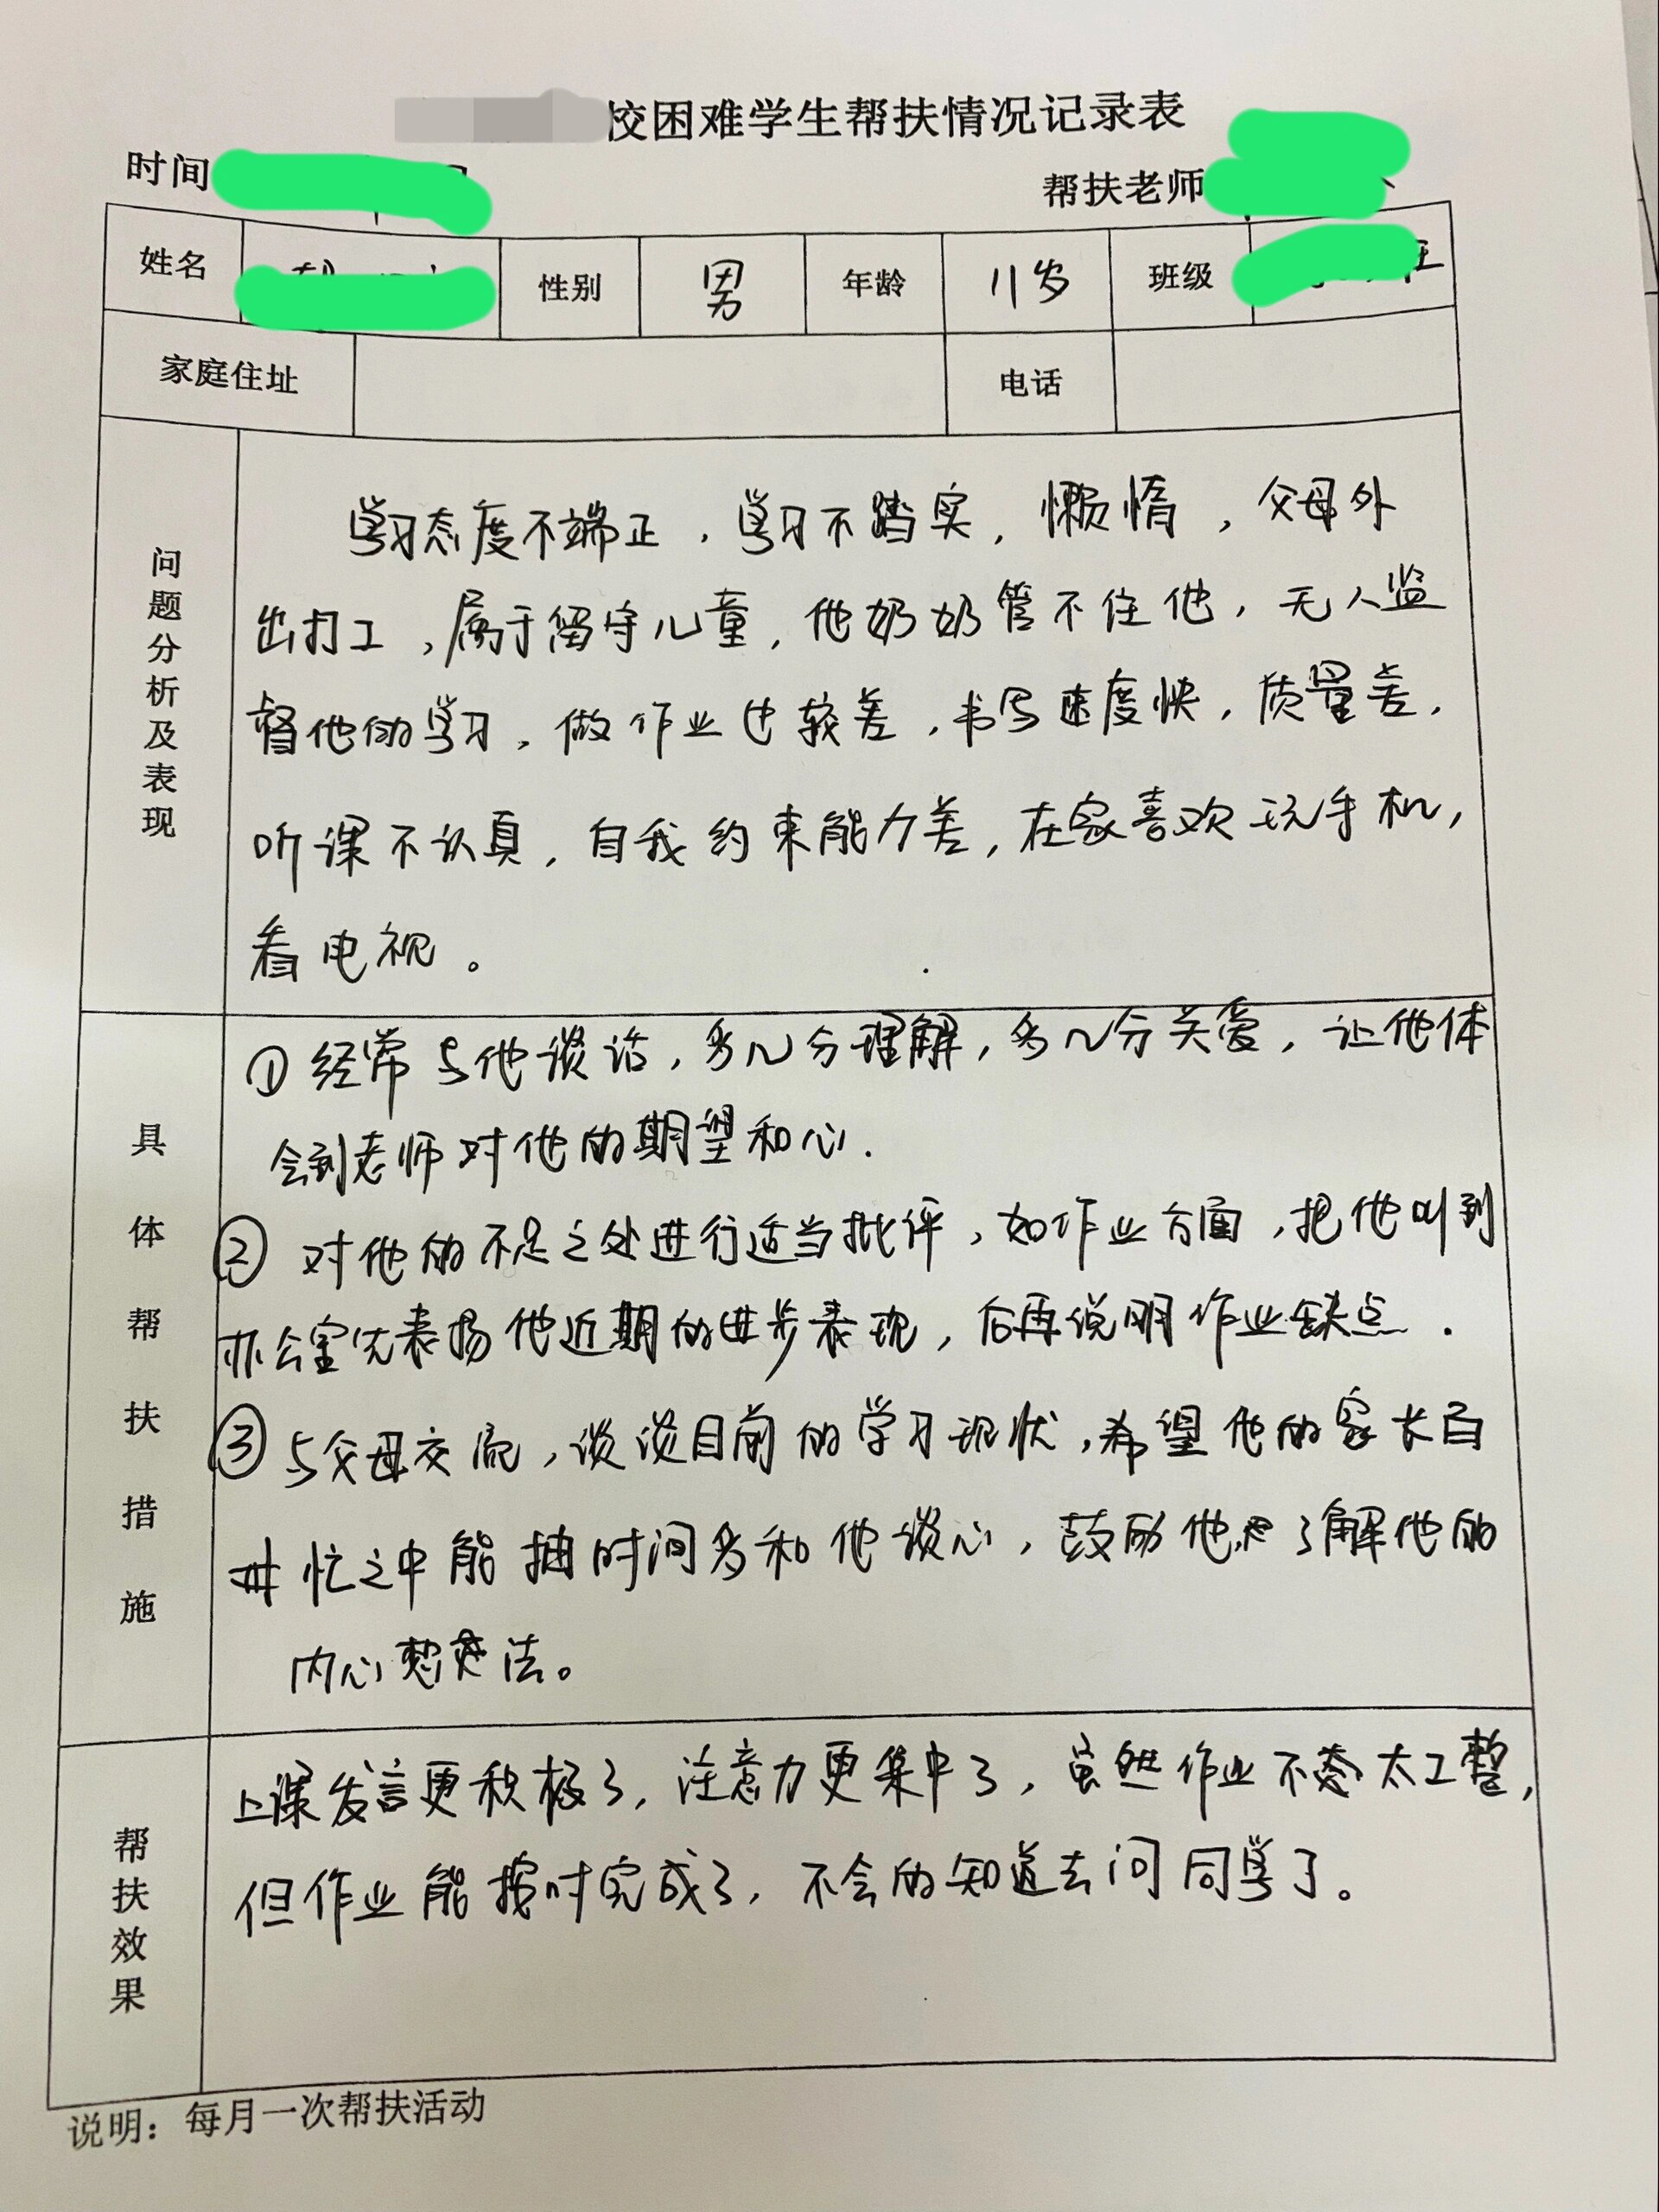 校困难学生帮扶情况记录表
时间
帮扶老师
姓名 性别 男 年龄 11岁 班级
家庭住址 电话
问题分析及表现
学习态度不端正，学习不踏实，懒惰，父母外
出打工，属于留守儿童，他奶奶管不住他，无人监
督他的学习，做作业也较差，书写速度快，质量差，
听课不认真，自我约束能力差，在家喜欢玩手机，
看电视。
具体帮扶措施
①经常与他谈话，多几分理解，多几分关爱，让他体
会到老师对他的期望和心.
②对他的不足之处进行适当批评，如作业方面，把他叫到
办公室先表扬他近期的进步表现，后再说明作业缺点.
③与父母交流，谈谈目前的学习现状，希望他的家长百
忙之中能抽时间多和他谈心，鼓励他 了解他的
内心想法。
帮扶效果
上课发言更积极了，注意力更集中了，虽然作业不太工整，
但作业能按时完成了，不会的知道去问同学了。
说明：每月一次帮扶活动